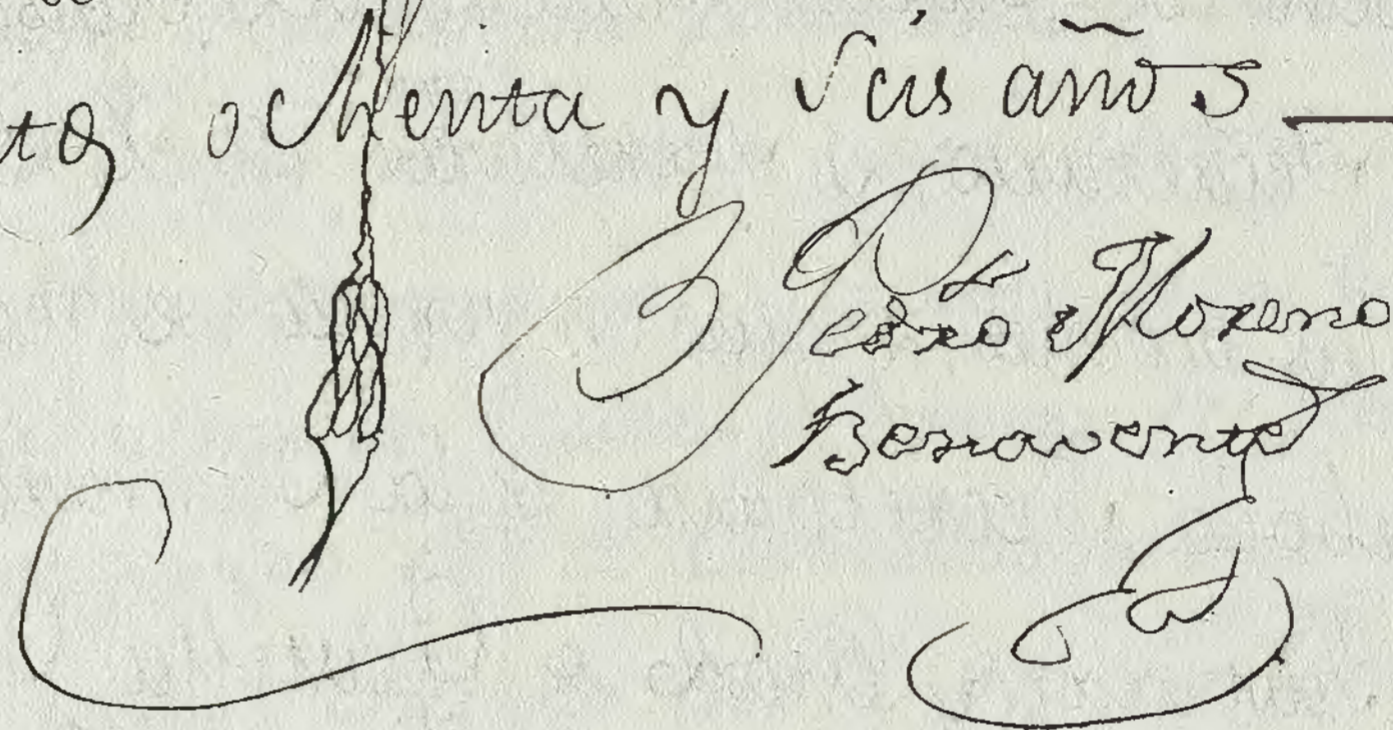 tos ochenta y seis años
Pedro Moreno
Benavente